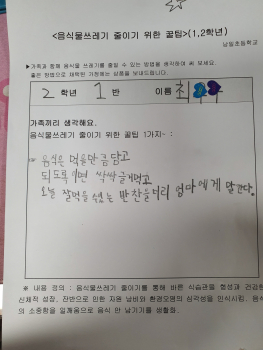 <음식물쓰레기 줄이기 위한 꿀팁>(1,2학년)
남일초등학교
▶가족과 함께 음식물 쓰레기를 줄일 수 있는 방법을 생각하여 써 보세요.
좋은 방법으로 채택된 가정에는 상품을 보내드립니다.
2 학년 1 반 이름 최
가족끼리 생각해요.
음식물쓰레기 줄이기 위한 꿀팁 1가지~ :
음식은 먹을만큼 담고
되도록이면 싹싹 긁어먹고
오늘 잘먹을 수 있는 반찬을 미리 엄마에게 말한다.
※ 내용 정의 : 음식물쓰레기 줄이기를 통해 바른 식습관을 형성과 건강한
신체적 성장, 잔반으로 인한 자원 낭비와 환경오염의 심각성을 인식시킴. 음식
의 소중함을 일깨움으로 음식 안 남기기를 생활화.